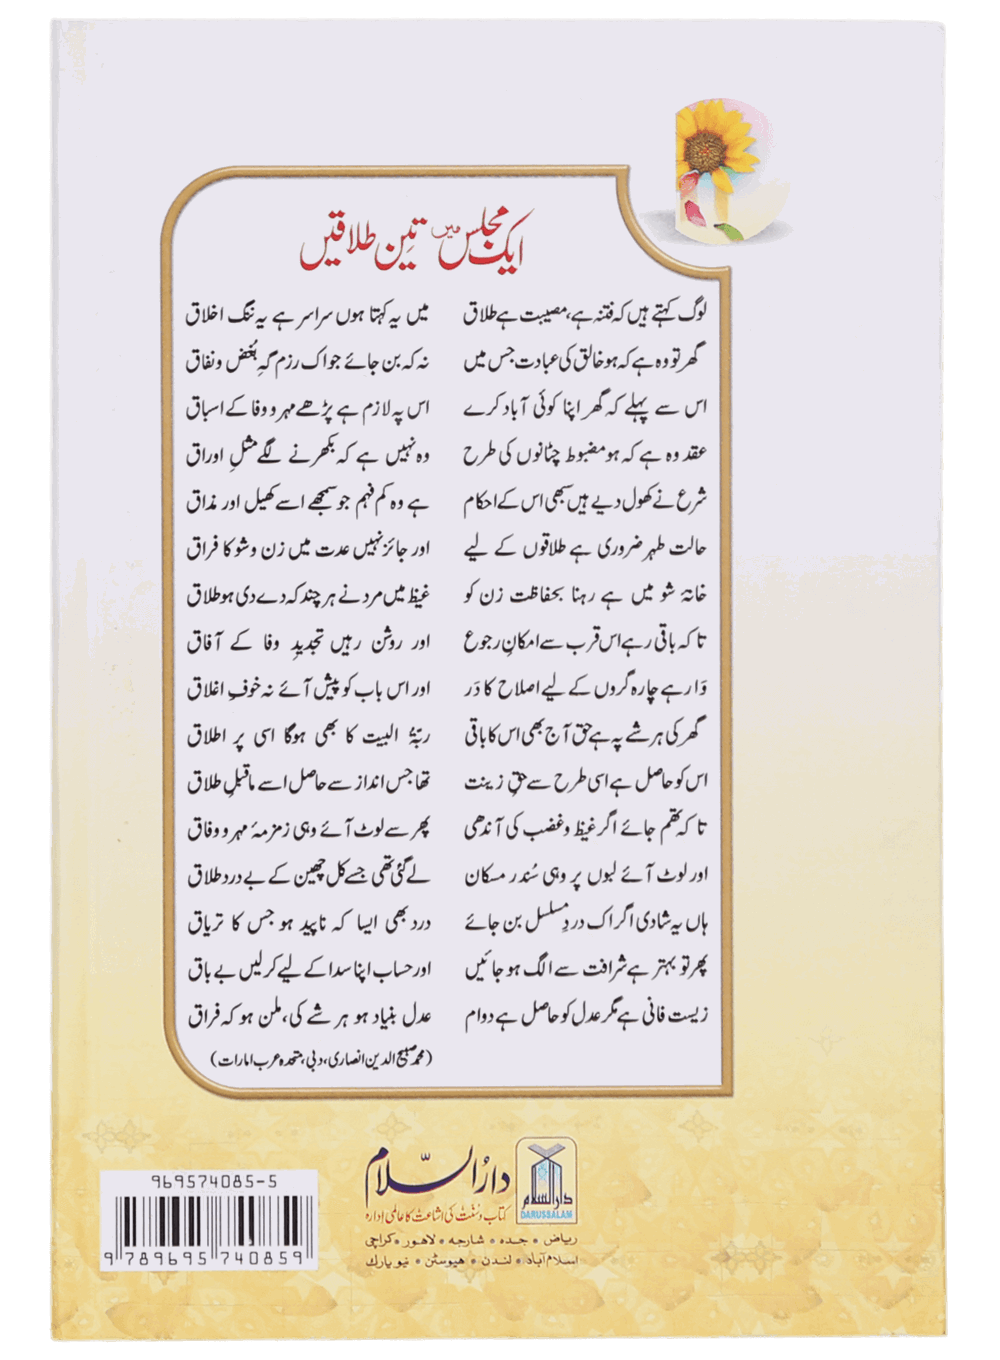 ایک مجلس میں تین طلاقیں
لوگ کہتے ہیں کہ فتنہ ہے، مصیبت ہے طلاق میں یہ کہتا ہوں سراسر ہے یہ ننگ اخلاق
گھر تو وہ ہے کہ ہو خالق کی عبادت جس میں نہ کہ بن جائے جو اک رزم گہِ بُغض و نفاق
اس سے پہلے کہ گھر اپنا کوئی آباد کرے اس پہ لازم ہے پڑھے مہر و وفا کے اسباق
عقد وہ ہے کہ ہو مضبوط چٹانوں کی طرح وہ نہیں ہے کہ بکھرنے لگے مثلِ اوراق
شرع نے کھول دیے ہیں سبھی اس کے احکام ہے وہ کم فہم جو سمجھے اسے کھیل اور مذاق
حالت طہر ضروری ہے طلاقوں کے لیے اور جائز نہیں عدت میں زن و شو کا فراق
خانۂ شو میں ہے رہنا بحفاظت زن کو غیظ میں مرد نے ہر چند کہ دے دی ہو طلاق
تا کہ باقی رہے اس قرب سے امکانِ رجوع اور روشن رہیں تجدیدِ وفا کے آفاق
وَا رہے چارہ گروں کے لیے اصلاح کا دَر اور اس باب کو پیش آئے نہ خوفِ اغلاق
گھر کی ہر شے پہ ہے حق آج بھی اس کا باقی ربّۃُ البیت کا بھی ہوگا اسی پر اطلاق
اس کو حاصل ہے اسی طرح سے حقِ زینت تھا جس انداز سے حاصل اسے ماقبلِ طلاق
تا کہ تھم جائے اگر غیظ و غضب کی آندھی پھر سے لوٹ آئے وہی زمزمۂ مہر و وفاق
اور لوٹ آئے لبوں پر وہی سُندر مسکان لے گئی تھی جسے کل چھین کے بے درد طلاق
ہاں یہ شادی اگر اک دردِ مسلسل بن جائے درد بھی ایسا کہ ناپید ہو جس کا تریاق
پھر تو بہتر ہے شرافت سے الگ ہو جائیں اور حساب اپنا سدا کے لیے کر لیں بے باق
زیست فانی ہے مگر عدل کو حاصل ہے دوام عدل بنیاد ہو ہر شے کی، ملن ہو کہ فراق
(محمد صبیح الدین انصاری، دبی، متحدہ عرب امارات)
دارالسلام
DARUSSALAM
دارُالسّلام
کتاب و سُنّت کی اشاعت کا عالمی ادارہ
ریاض • جدہ • شارجہ • لاہور • کراچی
اسلام آباد • لندن • ہیوسٹن • نیو یارک
969574085-5
9 789695 740859